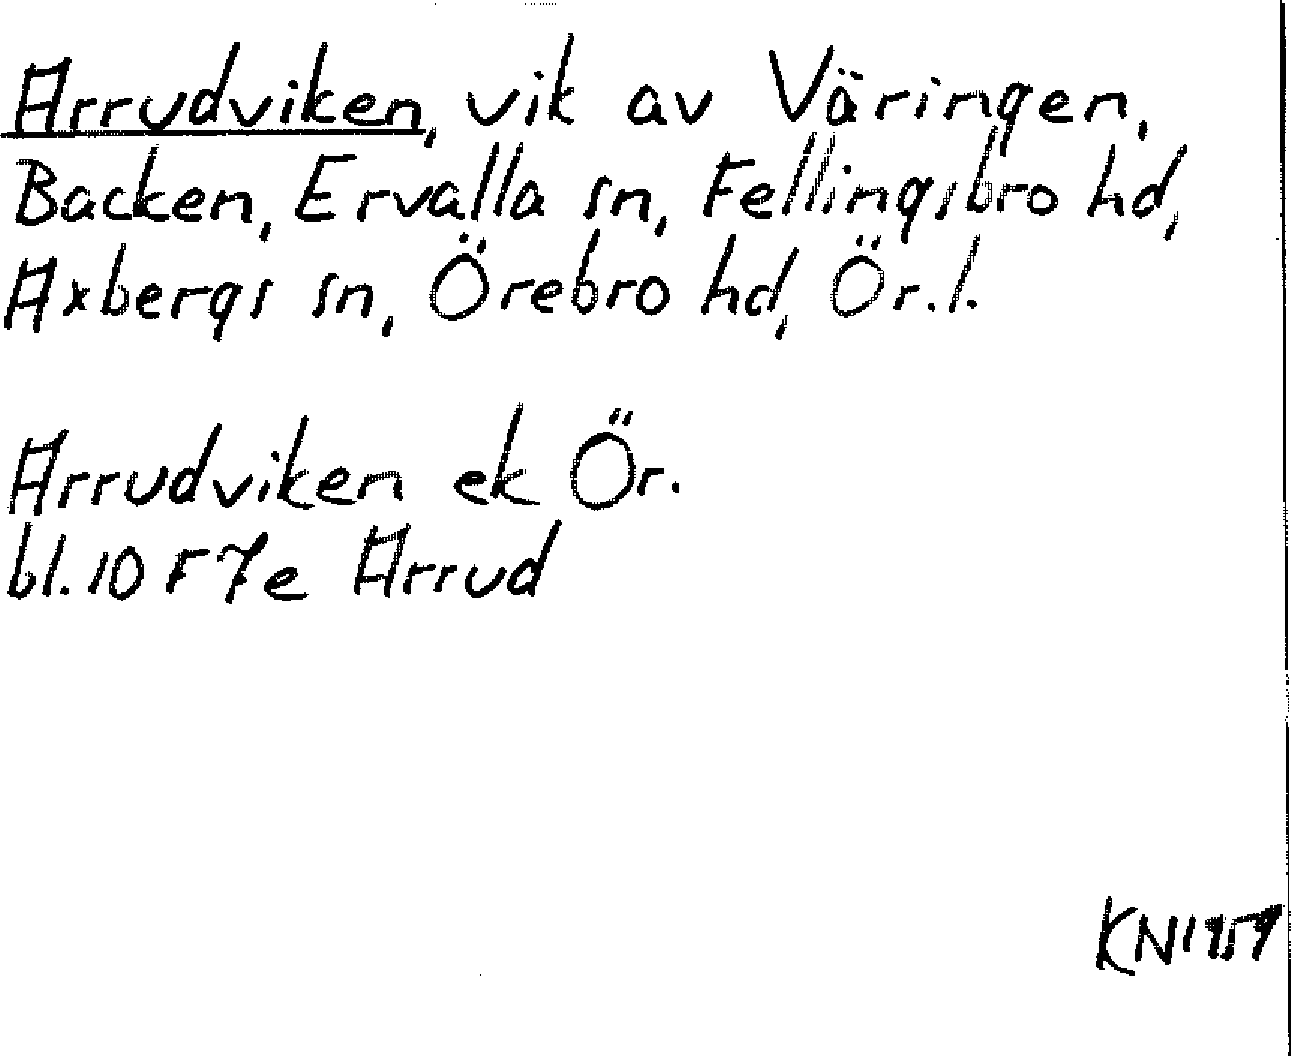 Arrudviken, vik av Väringen,
Backen, Ervalla sn, Fellingsbro hd,
Axbergs sn, Örebro hd, Ör. l.
Arrudviken ek Ör.
bl. 10 F 7e Arrud
KN 1959